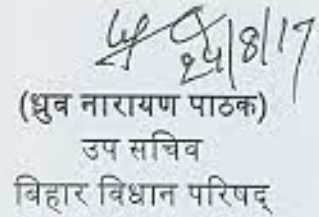 24/8/17
(ध्रुव नारायण पाठक)
उप सचिव
बिहार विधान परिषद्